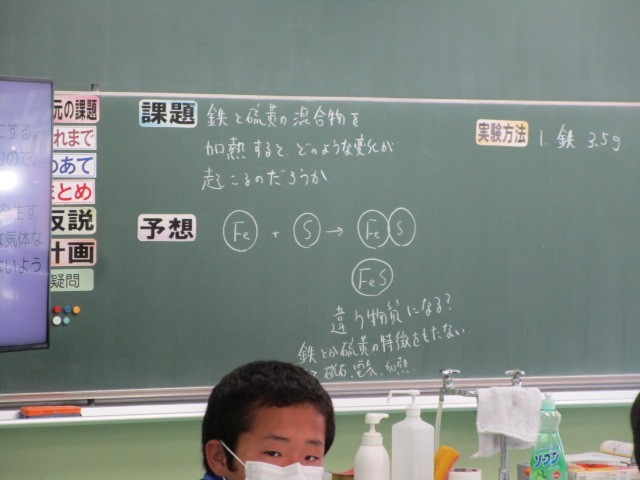 元の課題
れまで
めあて
まとめ
仮説
計画
疑問
にする。
ので、
生す
気体な
いよう
課題
鉄と硫黄の混合物を
加熱すると、どのような変化が
起こるのだろうか
予想
Fe + S → Fe S
FeS
違う物質になる?
鉄とか硫黄の特徴をもたない。
磁石、電気、加熱
実験方法
1. 鉄 3.5g
ソフン